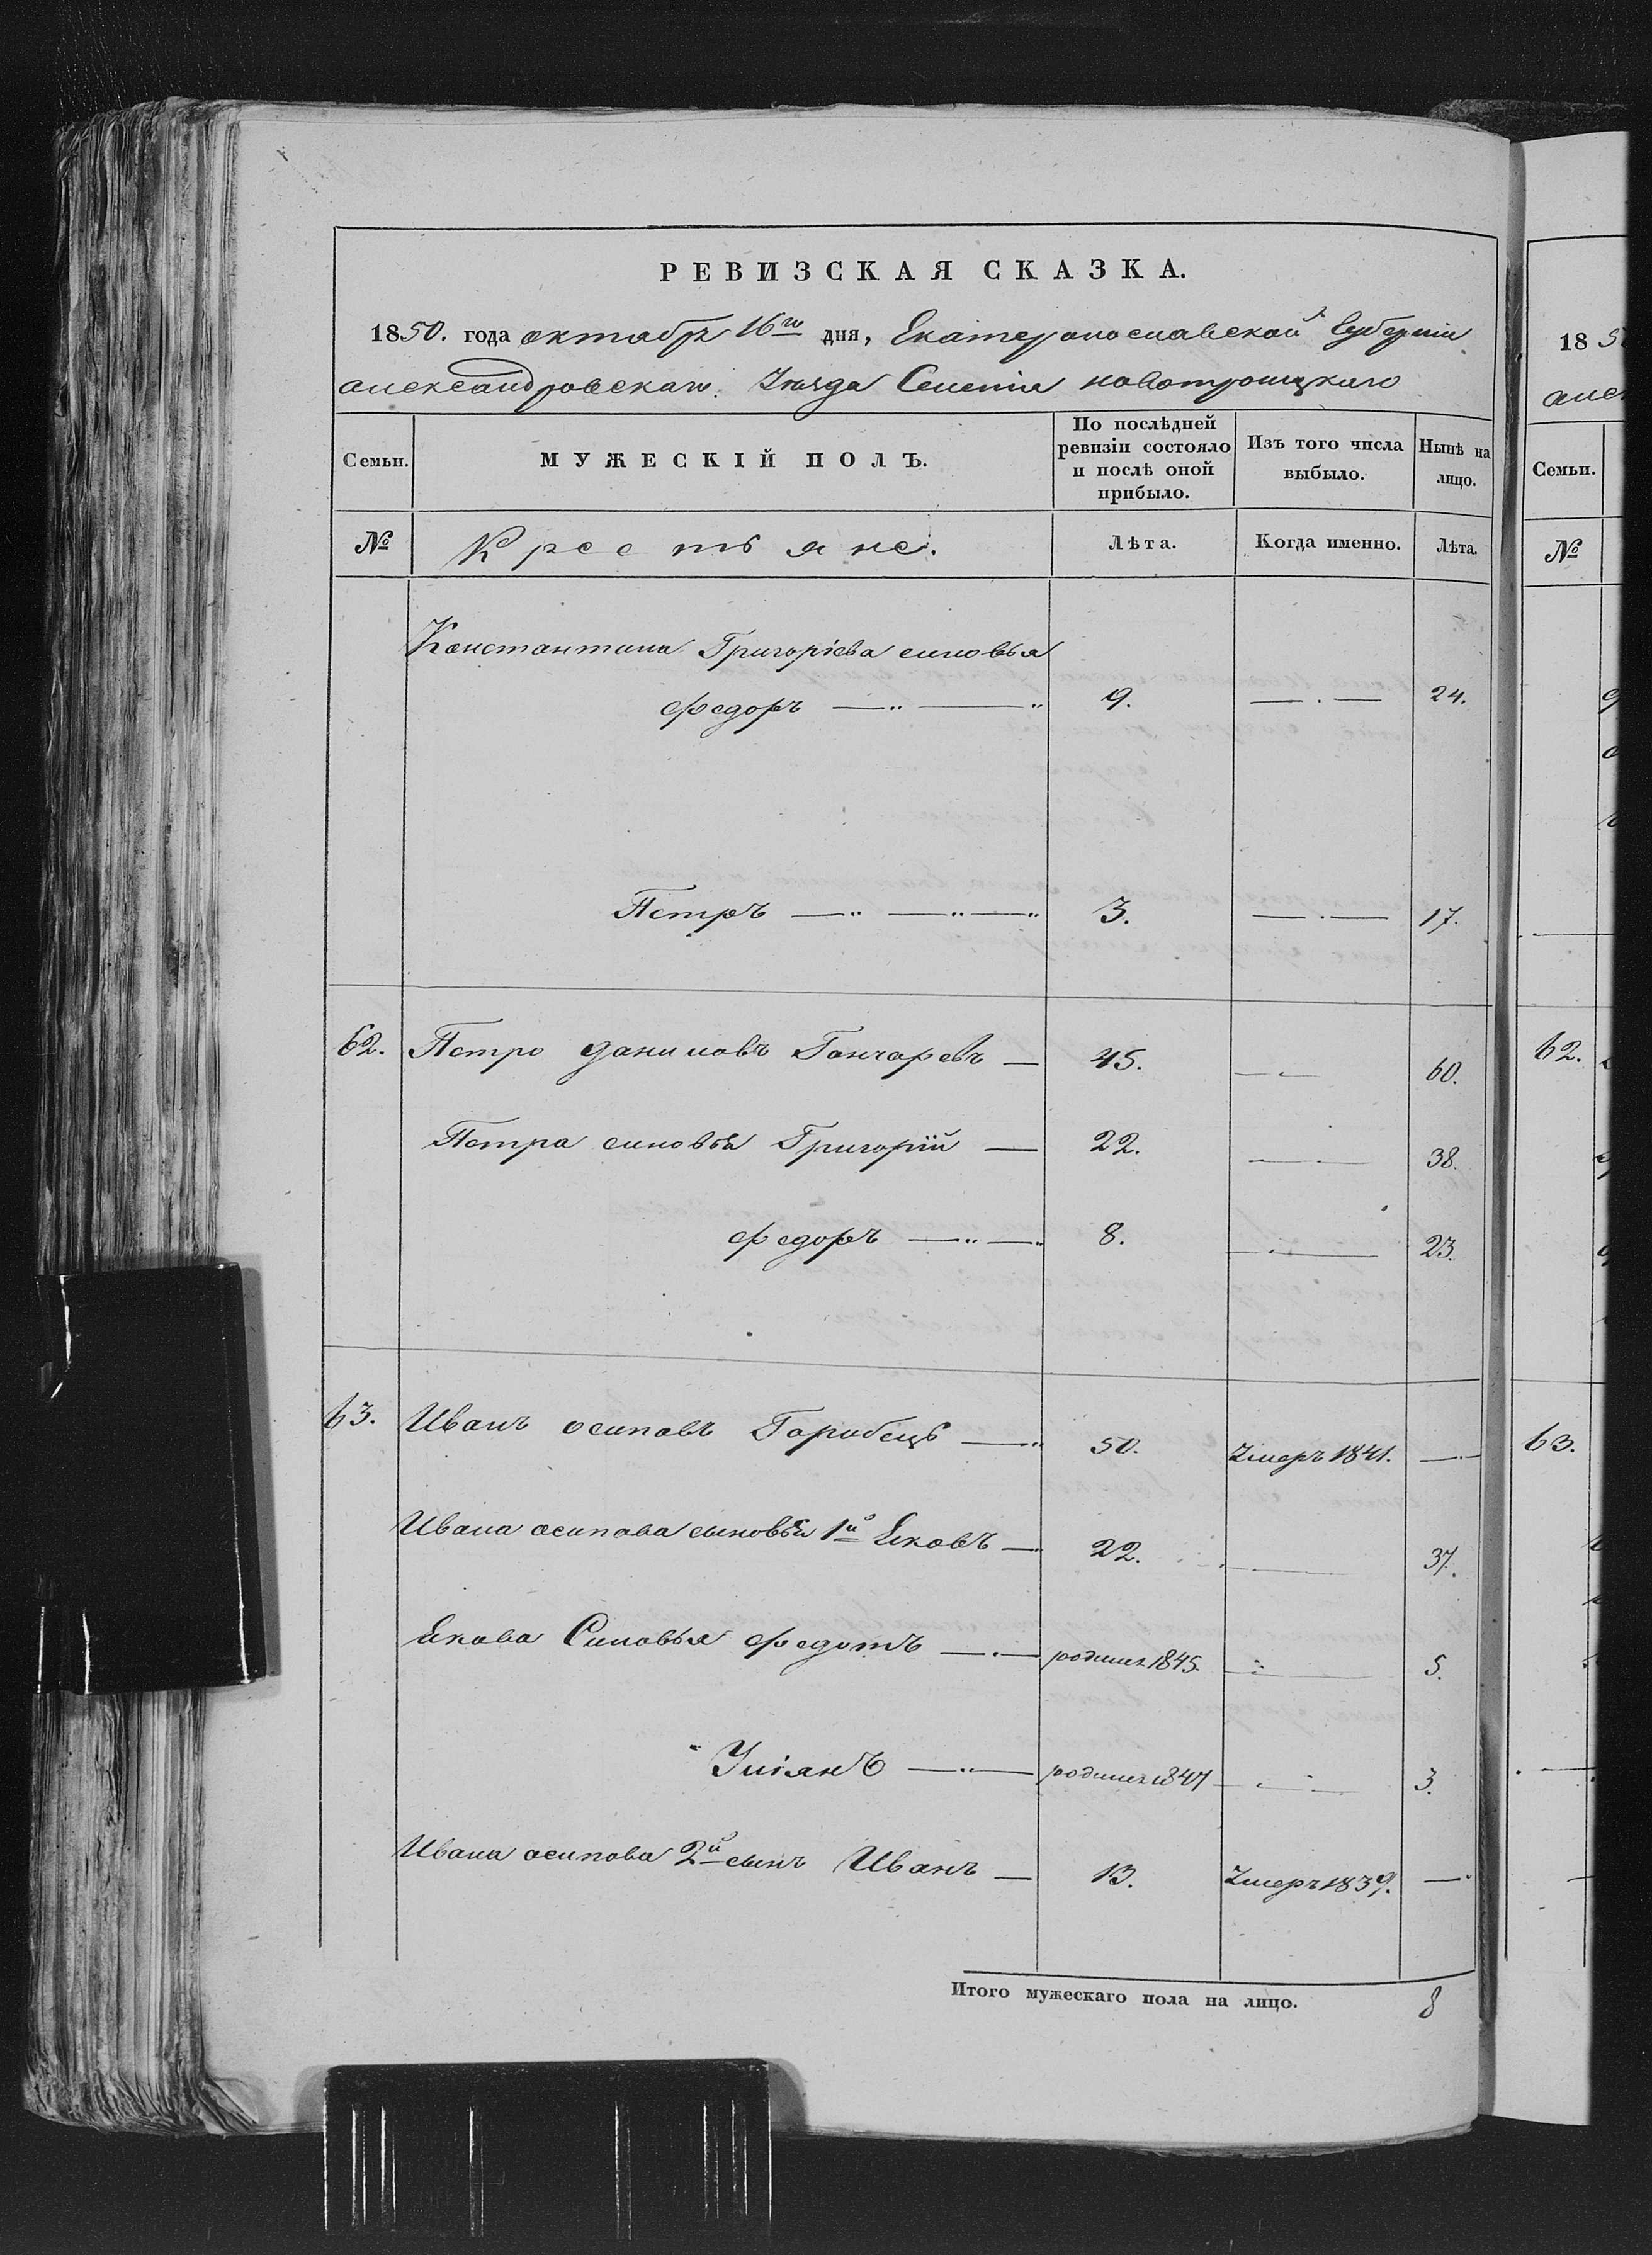 РЕВИЗСКАЯ СКАЗКА.
1850. года октабръ 16го дня, Екатеринославской Губерніи
александровскаго Уезда Селенія новотроицкаго
Семьи.
МУЖЕСКІЙ ПОЛЪ.
По послѣдней ревизіи состояло и послѣ оной прибыло.
Изъ того числа выбыло.
Нынѣ на лицо.
№ Крестьяне. Лѣта. Когда именно. Лѣта.
Константина Григоріева синовья
федоръ — „ — „ 9. — . — 24.
Петръ — „ — „ — „ 3. — . — 17.
62. Петро даниловъ Гончаревъ — 45. — . — 60.
Петра синовья Григорій — 22. — . — 38.
федоръ — „ — „ 8. — . — 23.
63. Иванъ осиповъ Горибець — „ 50. Умеръ 1841. — . —
Ивана осипова сыновья 1й Яковъ — 22. — . — 37.
Якова Синовья федотъ — . — родилс. 1845. — . — 5.
Уліянъ — „ — родилс 1847 — . — 3.
Ивана осипова 2й сынъ Иванъ — 13. Умеръ 1839. — .
Итого мужескаго пола на лицо. 8
18 5
алек
Семьи.
№
62.
63.